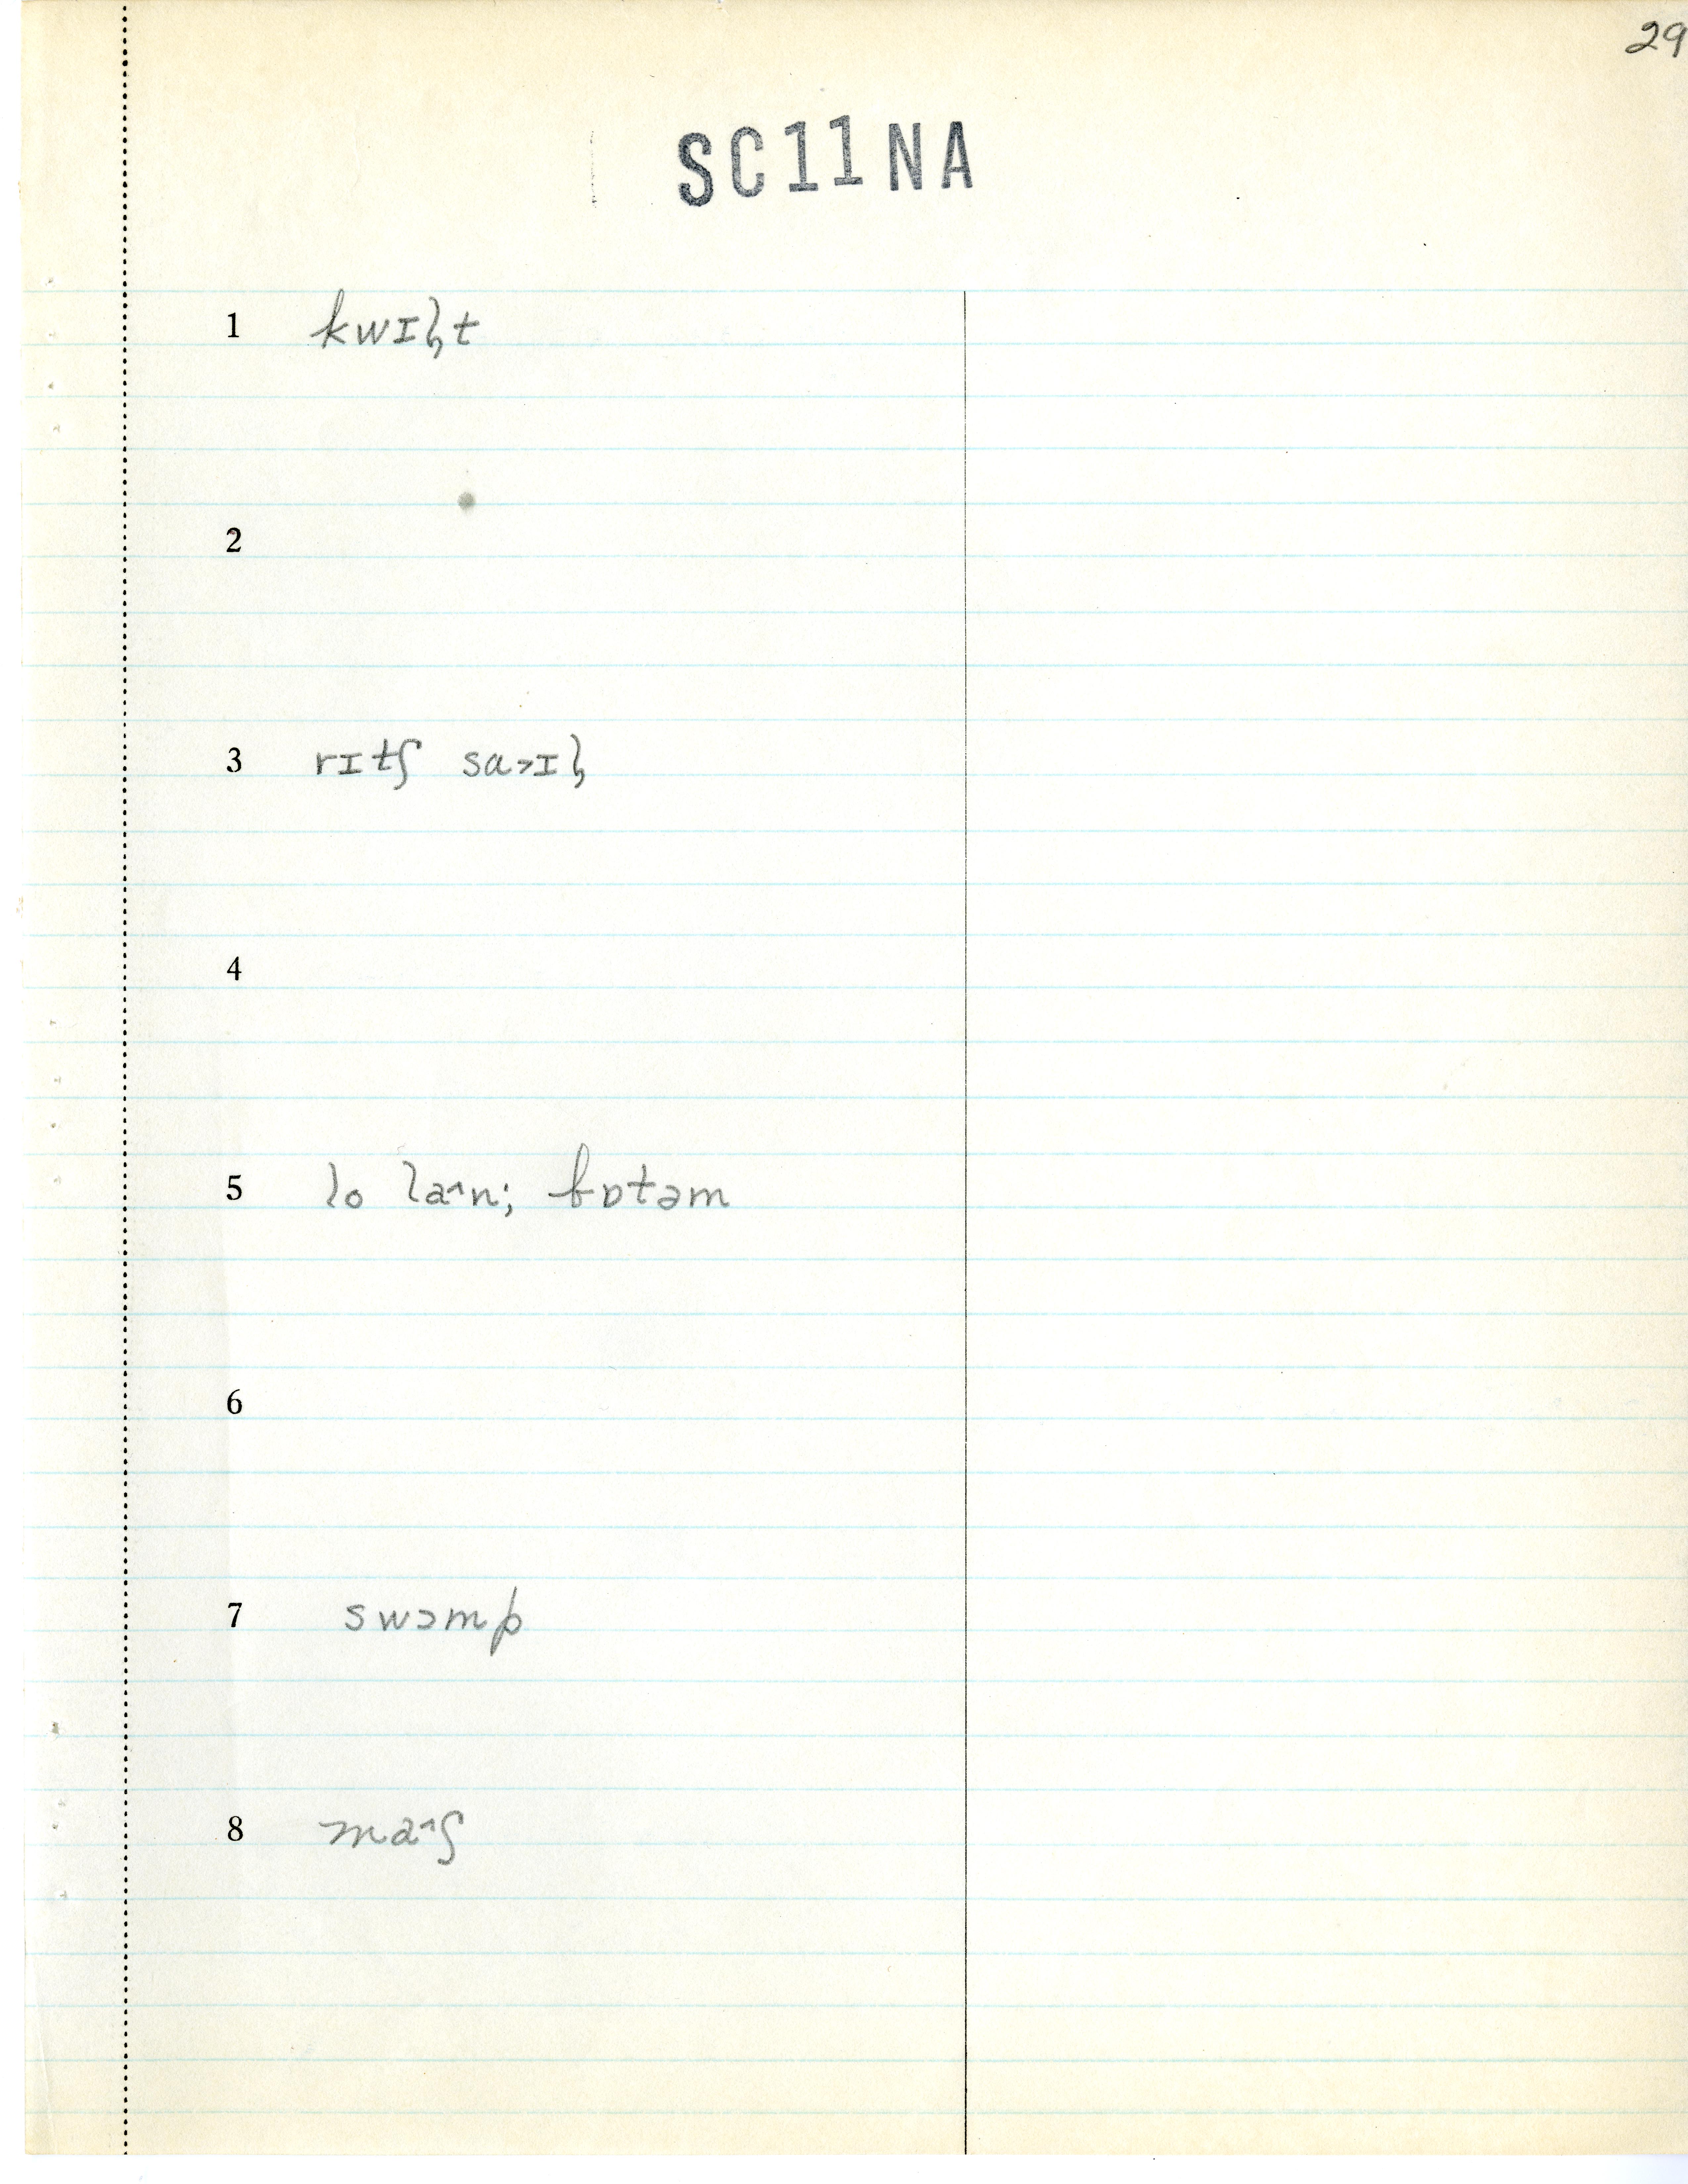 29
SC11NA
1 kwɪl̡t
2
3 rɪtʃ sɑ˃ɪl̡
4
5 lo la˄n; bɒtəm
6
7 swɔmp
8 ma˄ʃ